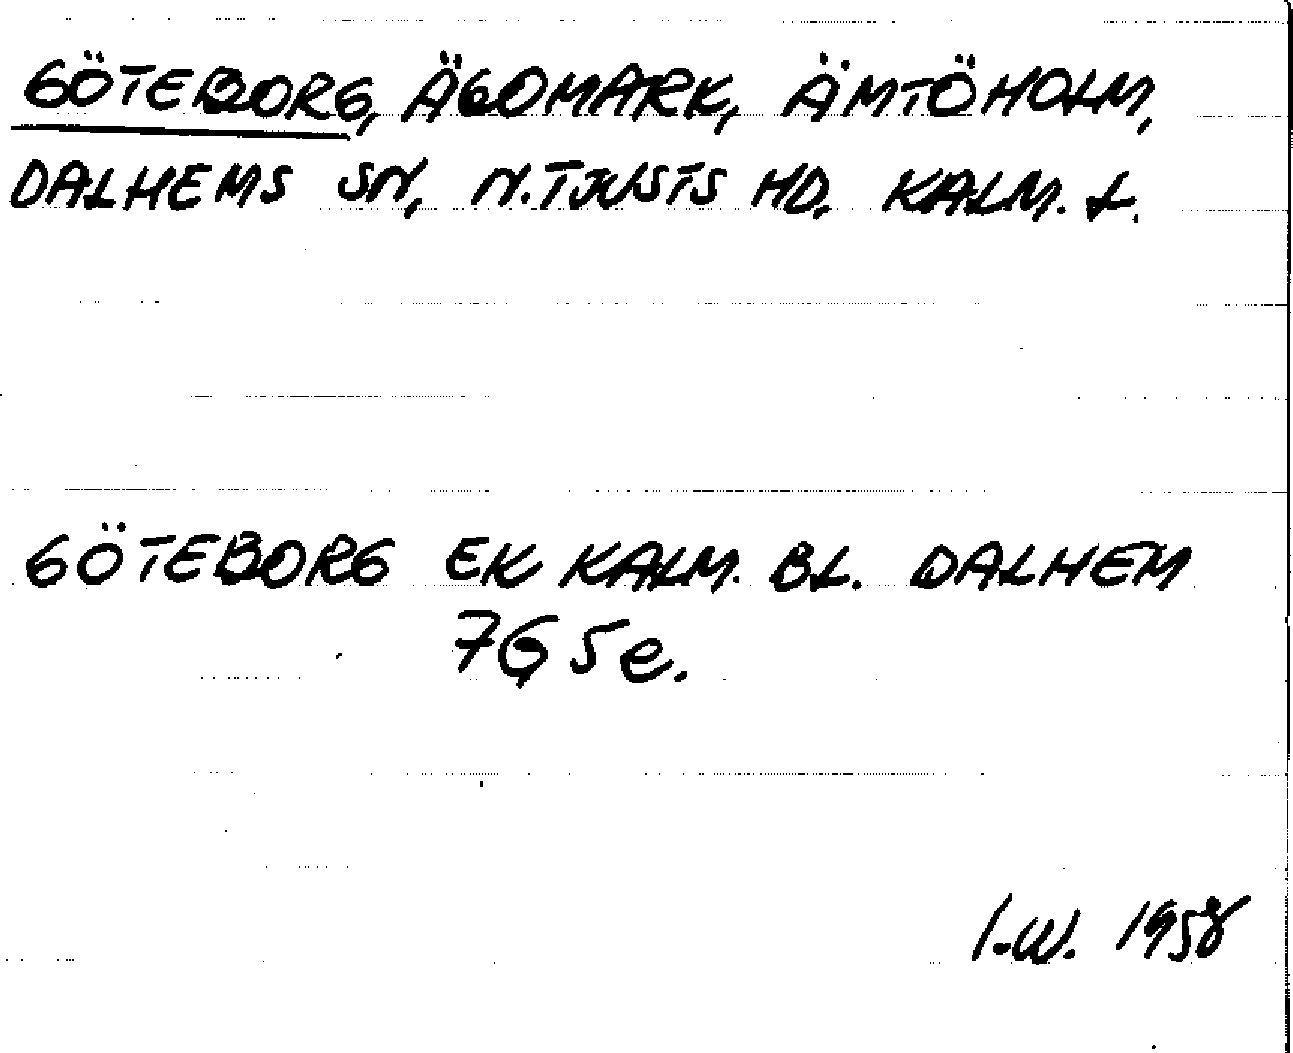 GÖTEBORG, ÄGOMARK, ÄMTÖHOLM,
DALHEMS SN, N.TJUSTS HD, KALM. L.
GÖTEBORG EK KALM. BL. DALHEM
7G 5e.
I.W. 1958